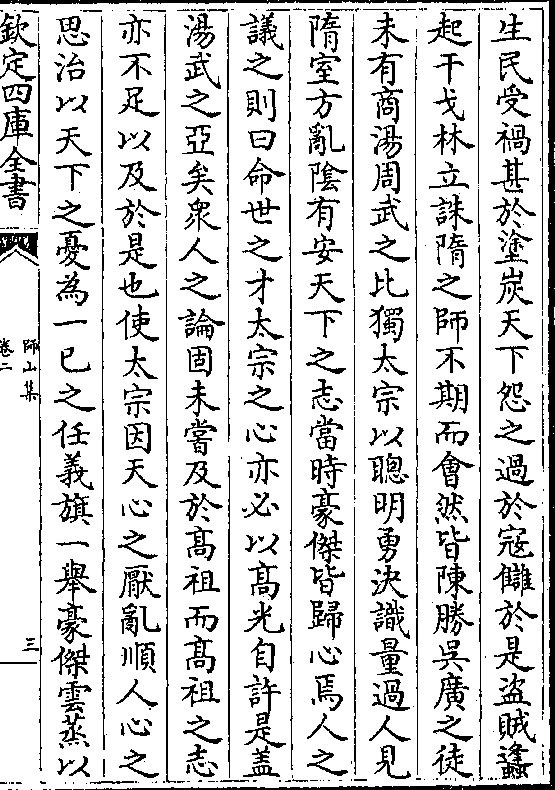 生民受禍甚於塗炭天下怨之過於寇讎於是盜賊蠭
起干戈林立誅隋之師不期而會然皆陳勝吳廣之徒
未有商湯周武之比獨太宗以聰明勇決識量過人見
隋室方亂陰有安天下之志當時豪傑皆歸心焉人之
議之則曰命世之才太宗之心亦必以髙光自許是盖
湯武之亞矣衆人之論固未嘗及於髙祖而髙祖之志
亦不足以及於是也使太宗因天心之厭亂順人心之
思治以天下之憂為一己之任義旗一舉豪傑雲蒸以
欽定四庫全書
師山集
卷二
三